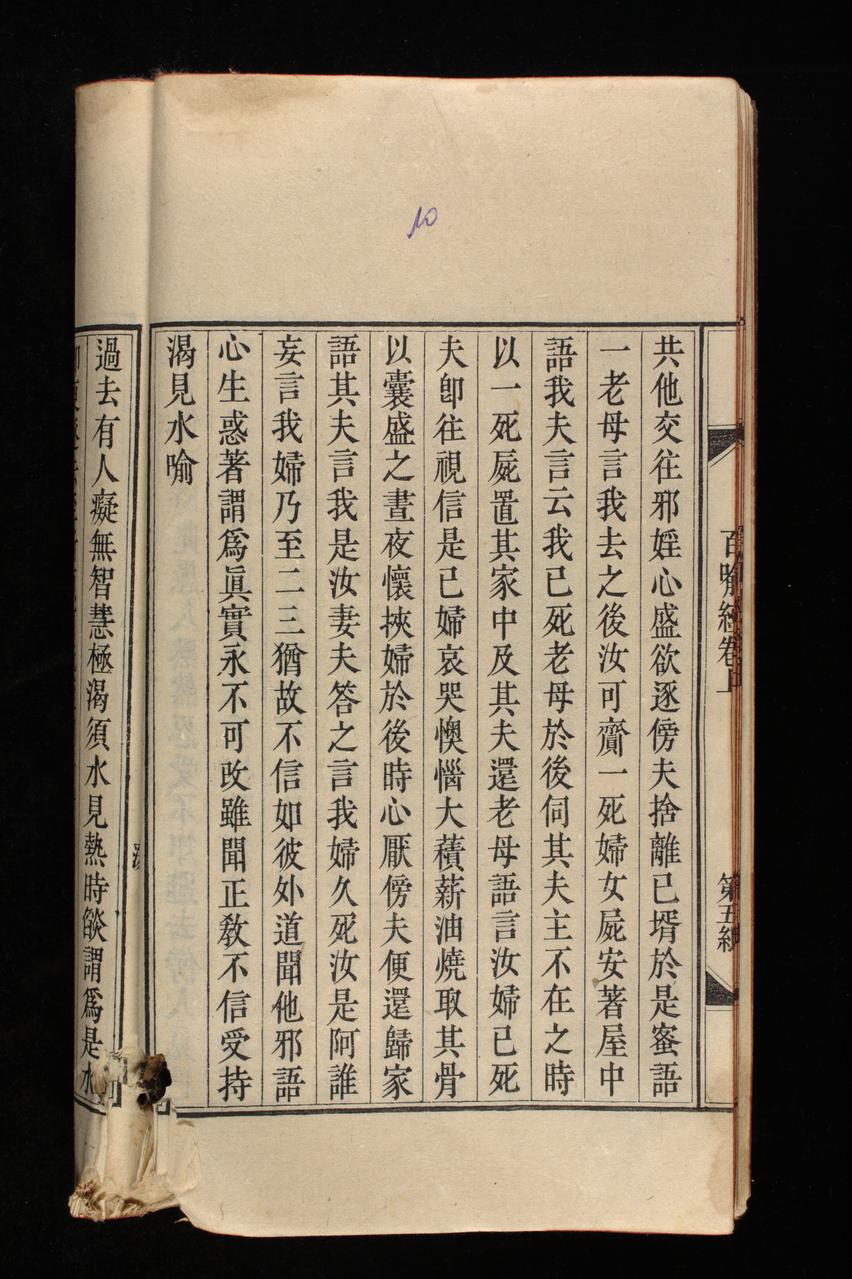 10
百喻經卷上
第五紙
共他交往邪婬心盛欲逐傍夫捨離已壻於是蜜語
一老母言我去之後汝可齎一死婦女屍安著屋中
語我夫言云我已死老母於後伺其夫主不在之時
以一死屍置其家中及其夫還老母語言汝婦已死
夫卽往視信是已婦哀哭懊惱大積薪油燒取其骨
以囊盛之晝夜懷挾婦於後時心厭傍夫便還歸家
語其夫言我是汝妻夫答之言我婦久死汝是阿誰
妄言我婦乃至二三猶故不信如彼外道聞他邪語
心生惑著謂爲眞實永不可改雖聞正敎不信受持
渴見水喻
過去有人癡無智慧極渴須水見熱時燄謂爲是水